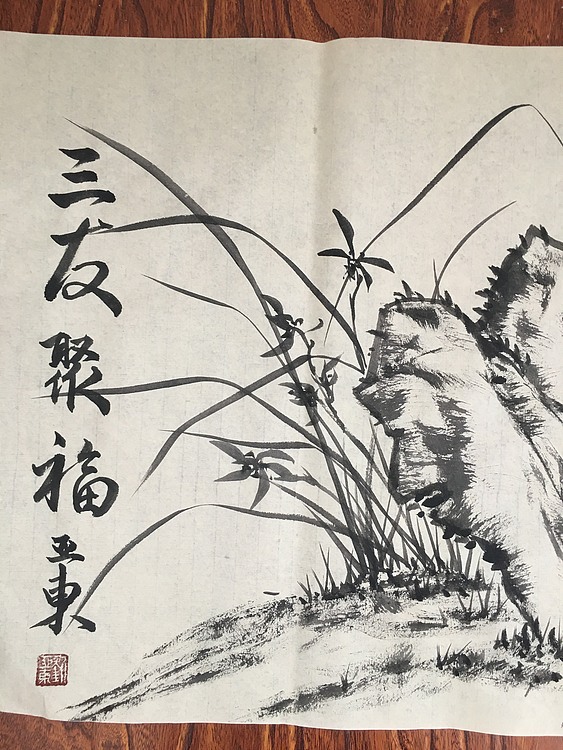 三友聚福
亚東